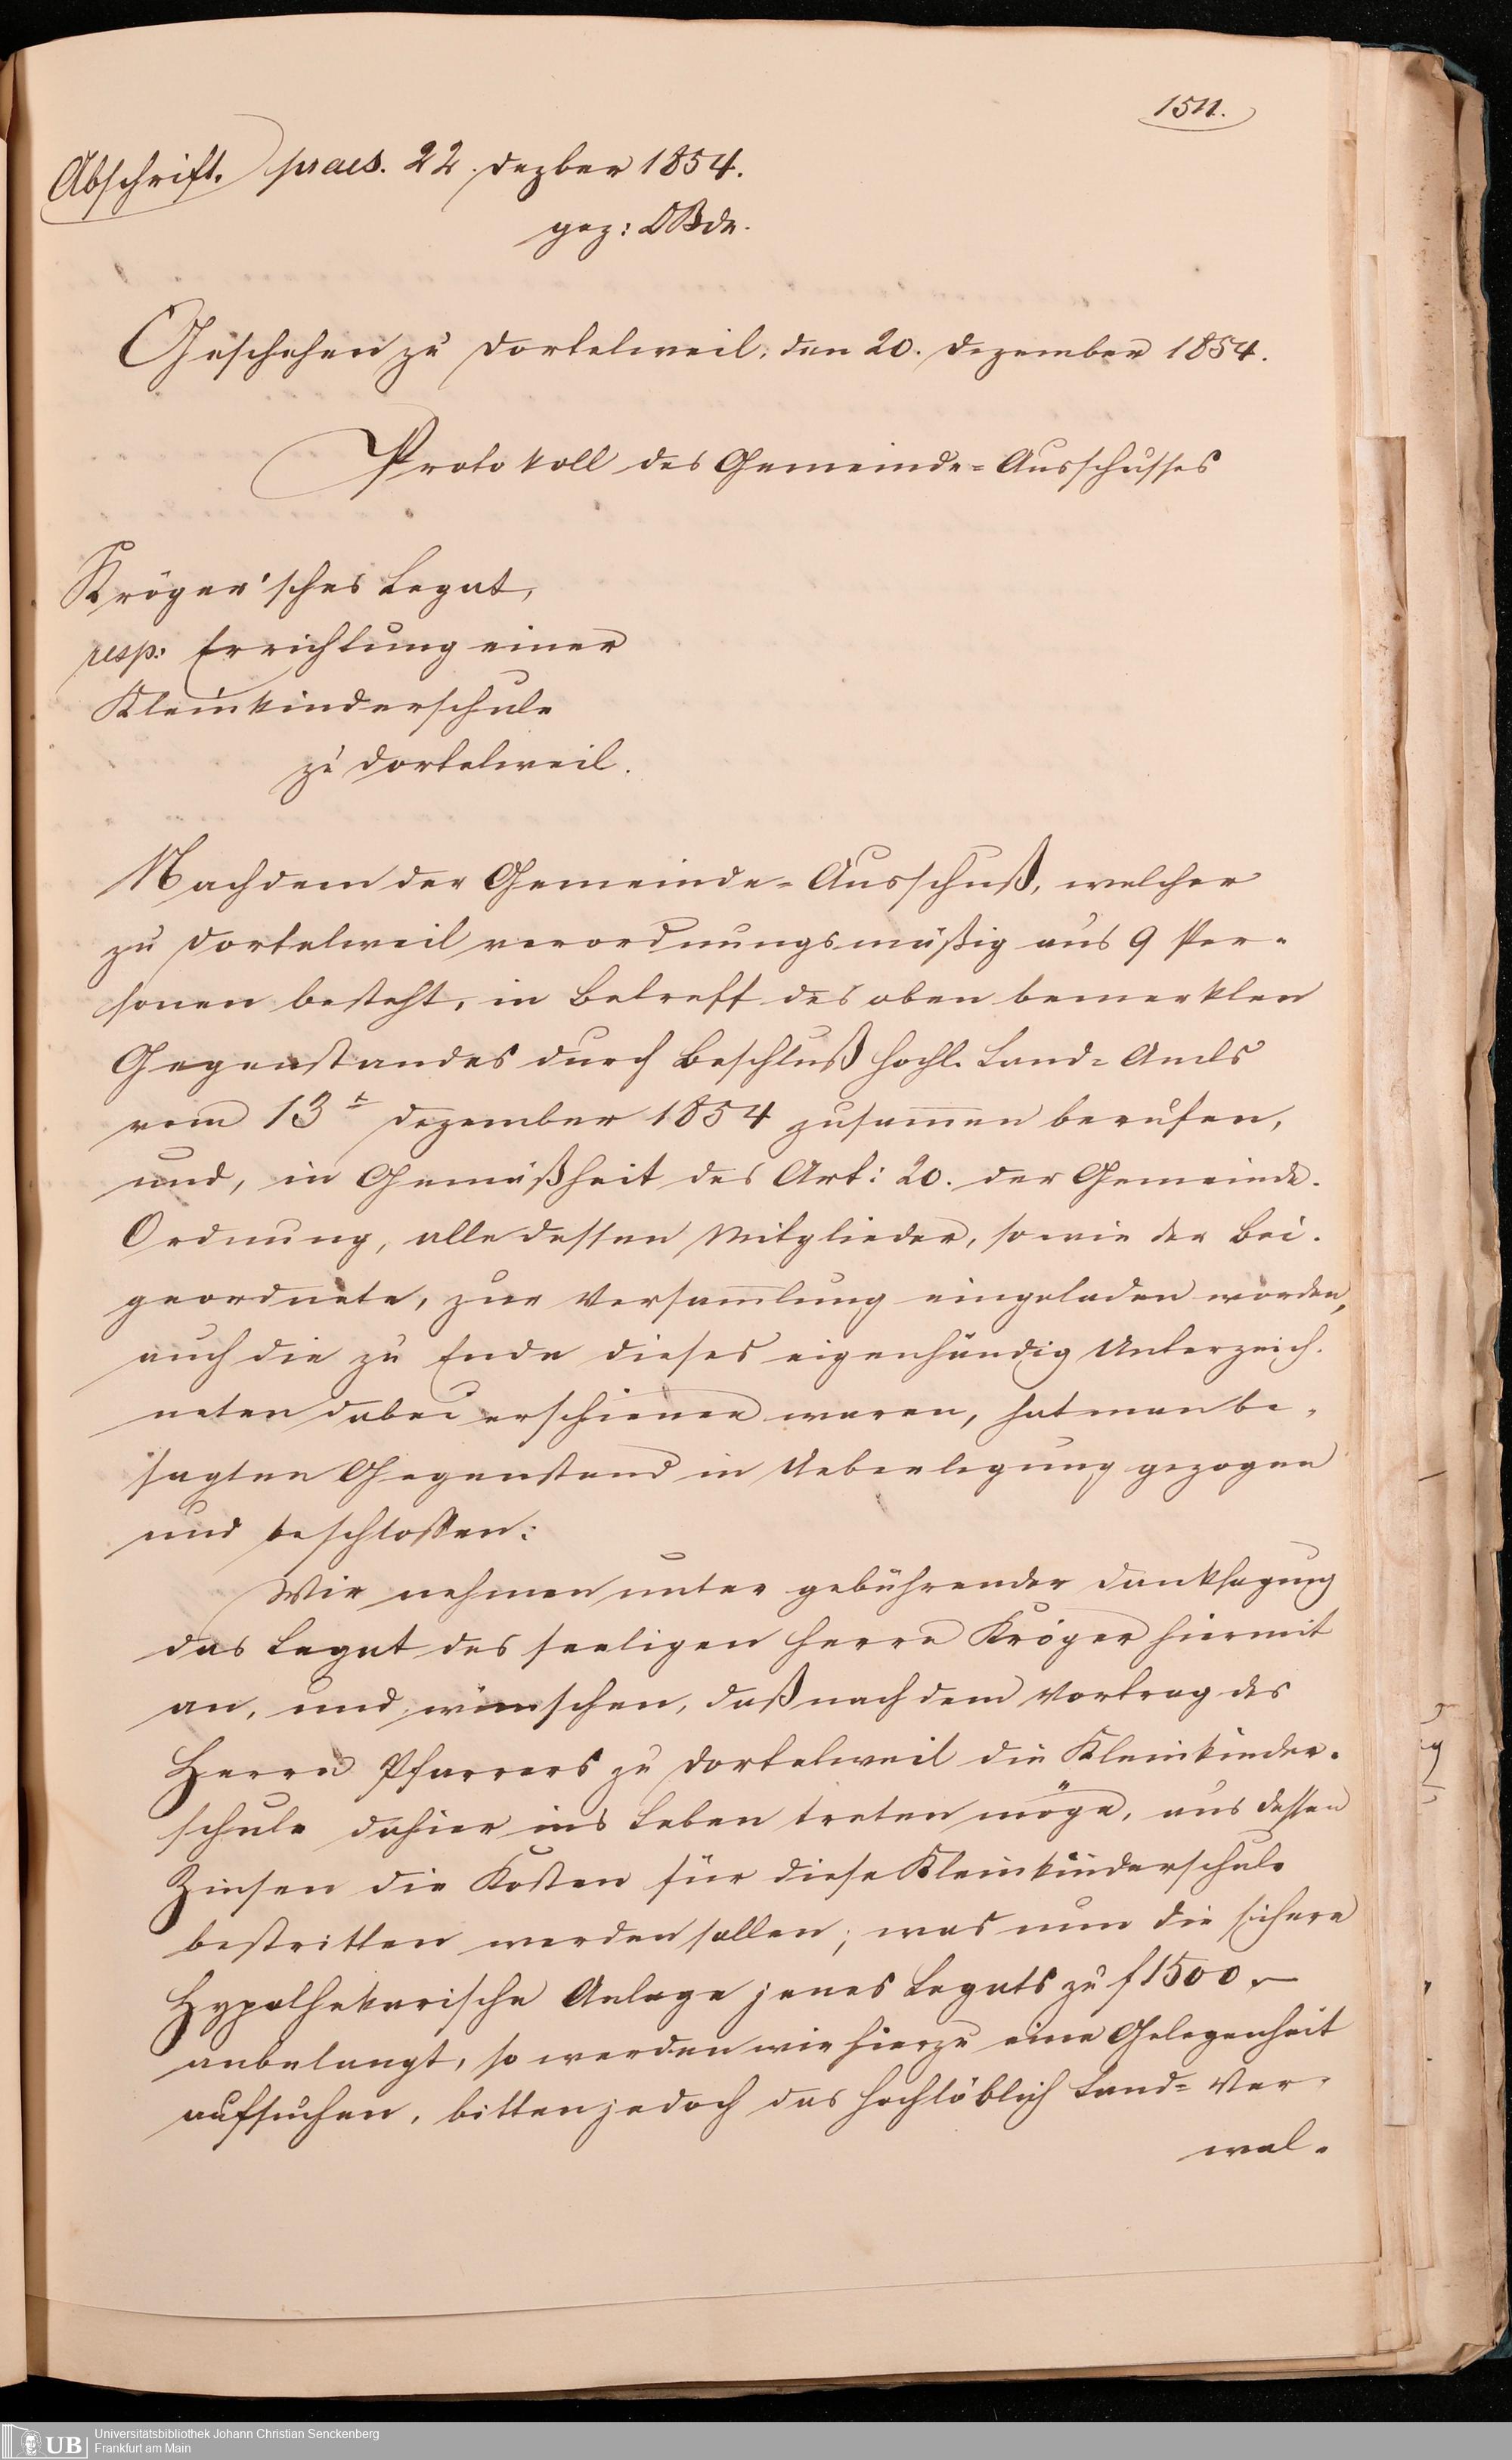 1511.
Abschrift. praes. 22. Dezber 1854.
gez: DBde.
Geschehen zu Dortelweil, den 20. Dezember 1854.
Protokoll des Gemeinde-Ausschusses
Kröger'sches Legat,
resp: Errichtung einer
Kleinkinderschule
zu Dortelweil.
Nachdem der Gemeinde-Ausschuß, welcher
zu Dortelweil verordnungsmäßig aus 9 Per-
sonen besteht, in Betreff des oben bemerkten
Gegenstandes durch Beschluß hochl. Land-Amts
vom 13t Dezember 1854 zusammen berufen,
und, in Gemäßheit des Art: 20. der Gemeinde-
Ordnung, alle dessen Mitglieder, sowie der Bei-
geordnete, zur Versammlung eingeladen worden,
auch die zu Ende dieses eigenhändig Unterzeich-
neten dabei erschienen waren, hat man be-
sagten Gegenstand in Ueberlegung gezogen
und beschloßen:
Wir nehmen unter gebührender Danksagung
das Legat des seeligen Herrn Kröger hiermit
an, und wünschen, daß nach dem Vortrag des
Herrn Pfarrers zu Dortelweil die Kleinkinder-
schule dahier ins Leben treten möge, aus dessen
Zinsen die Kosten für diese Kleinkinderschule
bestritten werden sollen; was nun die sichere
Hypothekarische Anlage jenes Legats zu f 1500.–
anbelangt, so werden wir hierzu eine Gelegenheit
aufsuchen, bitten jedoch das hochlöblich Land-Ver-
wal-
UB
Universitätsbibliothek Johann Christian Senckenberg
Frankfurt am Main